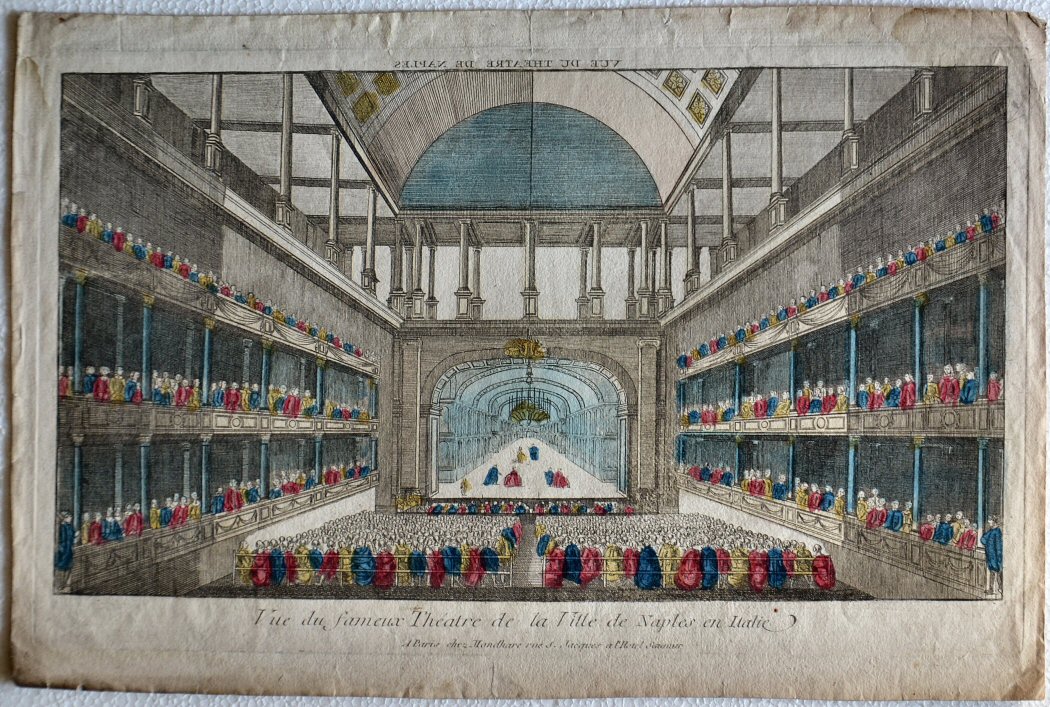 VUE DU THEATRE DE NAPLES
Vue du fameux Théatre de la Ville de Naples en Italie
A Paris chez Mondhare rue S. Jacques a l'Hotel Saumur